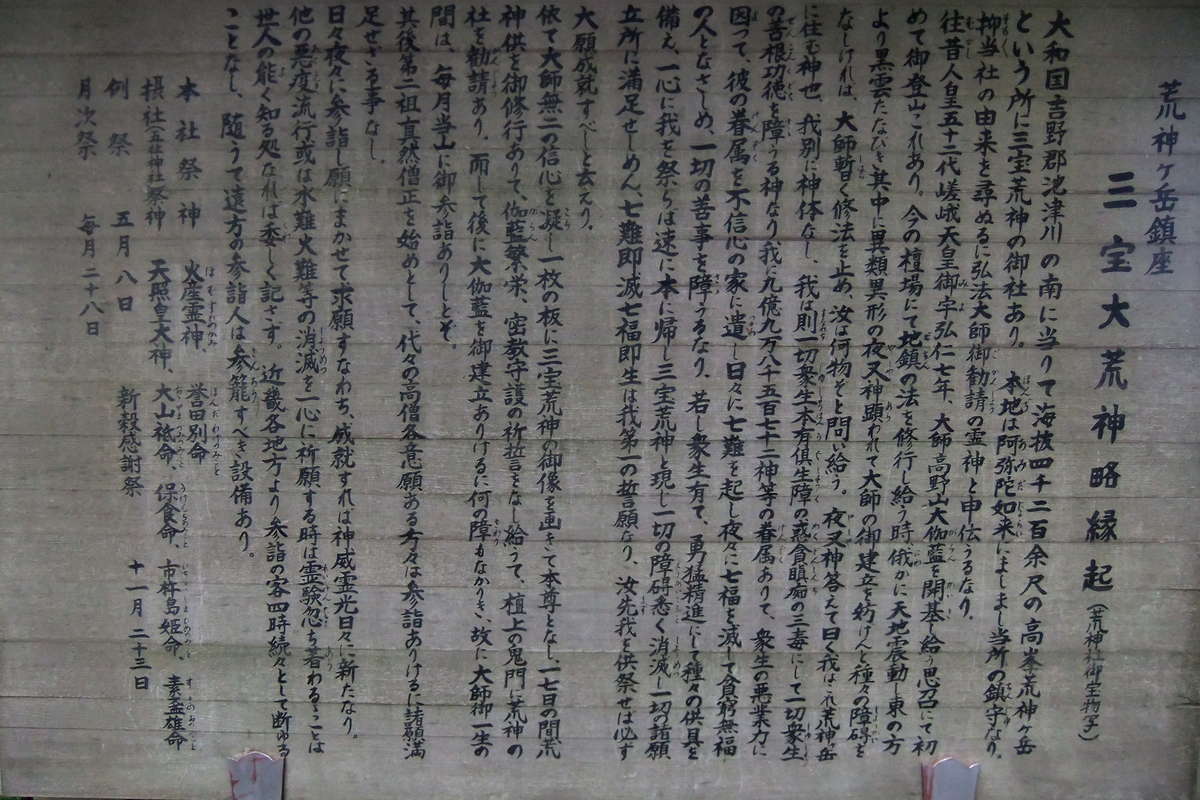 荒神ヶ岳鎮座
三宝大荒神略縁起(荒神社御宝物写)
大和国吉野郡池津川の南に当りて海抜四千二百余尺の高峯荒神ヶ岳
という所に三宝荒神の御社あり。本地は阿弥陀如来にましまし当所の鎮守なり。
抑当社の由来を尋ぬるに弘法大師御勧請の霊神と申伝うるなり。
往昔人皇五十二代嵯峨天皇御宇弘仁七年、大師高野山大伽藍を開基し給う思召にて初
めて御登山これあり。今の檀場にて地鎮の法を修行し給う時俄かに天地震動し東の方
より黒雲たなびき其中に異類異形の夜叉神顕われて大師の御建立を妨げんと種々の障碍を
なしければ、大師暫く修法を止め、汝は何物ぞと問い給う。夜叉神答えて曰く我はこれ荒神ヶ岳
に住む神也、我別に神体なし、我は則一切衆生本有倶生障の惑貪瞋痴の三毒にして一切衆生
の善根功徳を障うる神なり我に九億九万八千五百七十二神等の眷属ありて、衆生の悪業力に
因って、彼の眷属を不信心の家に遣し日々に七難を起し夜々に七福を滅して貧窮無福
の人となさしめ、一切の善事を障うるなり、若し衆生有て、勇猛精進にして種々の供具を
備え、一心に我を祭らは速に本に帰し三宝荒神と現し一切の障碍悉く消滅し一切の諸願
立所に満足せしめん、七難即滅七福即生は我第一の誓願なり、汝先我を供祭せは必す
大願成就すべしと云えり。
依て大師無二の信心を凝し一枚の板に三宝荒神の御像を画きて本尊となし、一七日の間荒
神供を御修行ありて、伽藍繁栄、密教守護の祈誓をなし給うて、檀上の鬼門に荒神の
社を勧請あり、而して後に大伽藍を御建立ありけるに何の障もなかりき、故に大師御一生の
間は、毎月当山に御参詣ありしとぞ。
其後第二祖真然僧正を始めとして、代々の高僧各意願ある方々は参詣ありけるに諸願満
足せざる事なし。
日々夜々に参詣し願にまかせて求願すなわち、成就すれば神威霊光日々に新たなり。
他の悪度流行或は水難火難等の消滅を一心に祈願する時は霊験忽ち著わるゝことは
世人の能く知る処なれば委しく記さず。近畿各地方より参詣の客四時続々として断ゆる
ことなし、随うて遠方の参詣人は参籠すべき設備あり。
本社祭神 火産霊神、誉田別命
摂社(五社神社祭神 天照皇大神、大山祗命、保食命、市杵島姫命、素盞雄命
例祭 五月八日 新穀感謝祭 十一月二十三日
月次祭 毎月二十八日